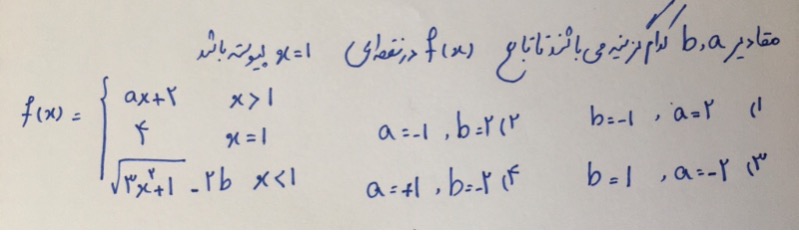 مقادیر b , a کدام گزینه می باشند تا تابع f(x) در نقطه‌ای x=1 پیوسته باشد
f(x) = { ax+۲ x>1
۴ x=1
√۳x²+1 - ۲b x<1
۱) b=-1 , a=۲
۲) a=-1 , b=۲
۳) b=1 , a=-۲
۴) a=+1 , b=-۲